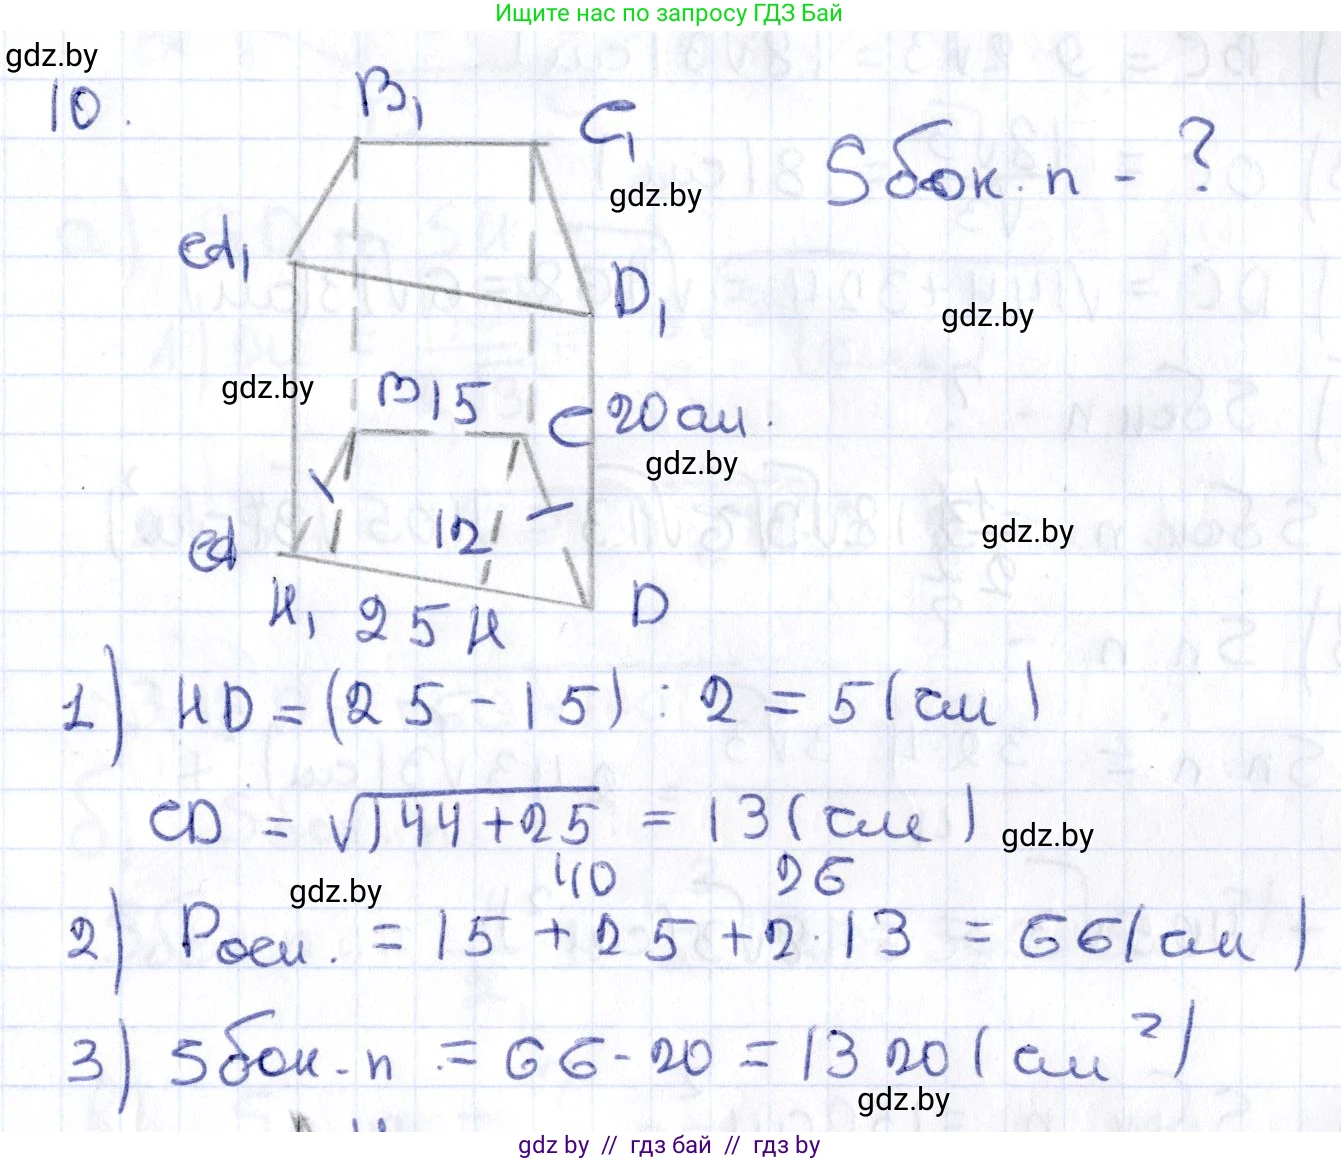 Ищите нас по запросу ГДЗ Бай
gdz.by
10.
B₁
C₁
Sбок.п - ?
gdz.by
A₁
D₁
gdz.by
gdz.by
B 15
C 20 см.
gdz.by
12
gdz.by
A
H₁ 25 H
D
1) HD = (25 - 15) : 2 = 5 (см)
CD = √144+25 = 13 (см)
gdz.by
40 26
gdz.by
2) Pосн. = 15 + 25 + 2·13 = 66 (см)
3) Sбок.п. = 66·20 = 1320 (см²)
gdz.by
gdz by // гдз бай // гдз by